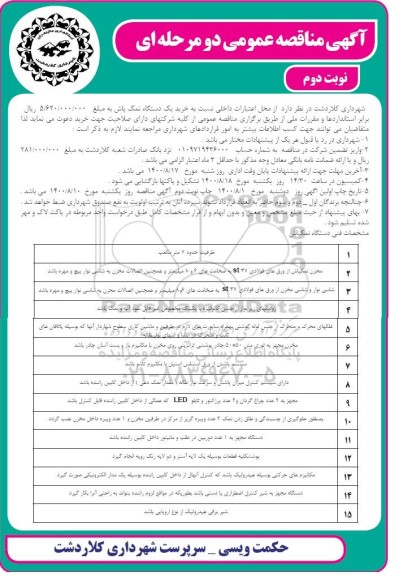 آگهی مناقصه عمومی دو مرحله ای
نوبت دوم
شهرداری کلاردشت در نظر دارد از محل اعتبارات داخلی نسبت به خرید یک دستگاه نمک پاش به مبلغ ۵/۶۲۰/۰۰۰/۰۰۰ ریال
برابر استانداردها و مقررات ملی از طریق برگزاری مناقصه عمومی از کلیه شرکتهای دارای صلاحیت جهت خرید دعوت می نماید لذا
متقاضیان می توانند جهت کسب اطلاعات بیشتر به امور قراردادهای شهرداری مراجعه نمایند لازم به ذکر است :
۱-شهرداری در رد یا قبول هر یک از پیشنهادات مختار می باشد .
۲-واریز تضمین شرکت در مناقصه به شماره حساب ۰۱۰۹۷۱۹۴۳۶۰۰۰ نزد بانک صادرات شعبه کلاردشت به مبلغ ۲۸۱/۰۰۰/۰۰۰
ریال و یا ارائه ضمانت نامه بانکی معادل وجه مذکور با حداقل ۳ ماه اعتبار الزامی می باشد .
۳-آخرین مهلت جهت ارائه پیشنهادات پایان وقت اداری روز شنبه مورخ ۱۴۰۰/۸/۱۷ می باشد .
۴-کمیسیون در ساعت ۱۴/۳۰ روز یکشنبه مورخ ۱۴۰۰/۸/۱۸ تشکیل و پاکتها بازگشایی می شود .
۵-تاریخ چاپ اولین آگهی روز دوشنبه مورخ ۱۴۰۰/۸/۱ چاپ نوبت دوم آگهی مناقصه روز یکشنبه مورخ ۱۴۰۰/۸/۱۰ می باشد .
۶-چنانچه برندگان اول ، دوم و سوم حاضر به انعقاد قرارداد نشوند سپرده آنان به ترتیب اولویت به نفع صندوق شهرداری ضبط خواهد شد .
۷-بهای پیشنهاد از حیث مبلغ مشخص و معین و بدون ابهام و از قرار مشخصات کامل طبق درخواست واحد مربوطه در پاکت لاک و مهر
شده تسلیم شود .
مشخصات فنی دستگاه نمکپاش
۱ ظرفیت حدود ۲ متر مکعب
۲ مخزن نمکپاش از ورق های فولادی st ۳۷ به ضخامت های ۴ و ۸ میلیمتر و همچنین اتصالات مخزن به شاسی نوار پیچ و مهره باشد
۳ شاسی نوار و شاسی مخزن از ورق های فولادی st ۳۷ به ضخامت های ۸و۶ میلیمتر و همچنین اتصالات مخزن به شاسی نوار پیچ و مهره باشد
۴
۵
۶ مخزن مجهز به توری متی ۵۰*۵۰ چادر پوششی ترانزیتی روی مخزن با مکانیزم باز و بست آسان چادر باشد
۷
۸ دارای سیستم کنترل میزان پاشش و سرعت نوار نقاله ( مقدار نمک دهی ) از داخل کابین راننده باشد
۹ مجهز به ۲ عدد چراغ گردان و۲ عدد پرژاکتور و تابلو LED که همگی از داخل کابین راننده قابل کنترل باشد
۱۰ بمنظور جلوگیری از چسبندگی و طاق زدن نمک ۲ عدد ویبره گریز از مرکز در طرفین مخزن و ۱ عدد ویبره داخل مخزن نصب گردد
۱۱ دستگاه مجهز به ۱ عدد دوربین در عقب و مانیتور داخل کابین راننده باشد
۱۲ پوششکلیه قطعات بوسیله یک لایه آستر و دو لایه رنگ رویه انجام گیرد
۱۳ مکانیزم های حرکتی بوسیله هیدرولیک باشد که کنترل آنهااز از داخل کابین راننده بوسیله یک مدار الکترونیکی صورت گیرد
۱۴ دستگاه مجهز به شیر کنترل اضطراری یا دستی باشد بطوریکه در مواقع لزوم راننده بتواند به راحتی آنرا بکار گیرد
۱۵ شیر برقی هیدرولیک از نوع اروپایی باشد
پایگاه اطلاع رسانی مناقصه و مزایده
۰۲۱-۸۸۳۴۹۶۷۰-۵
حکمت ویسی _ سرپرست شهرداری کلاردشت